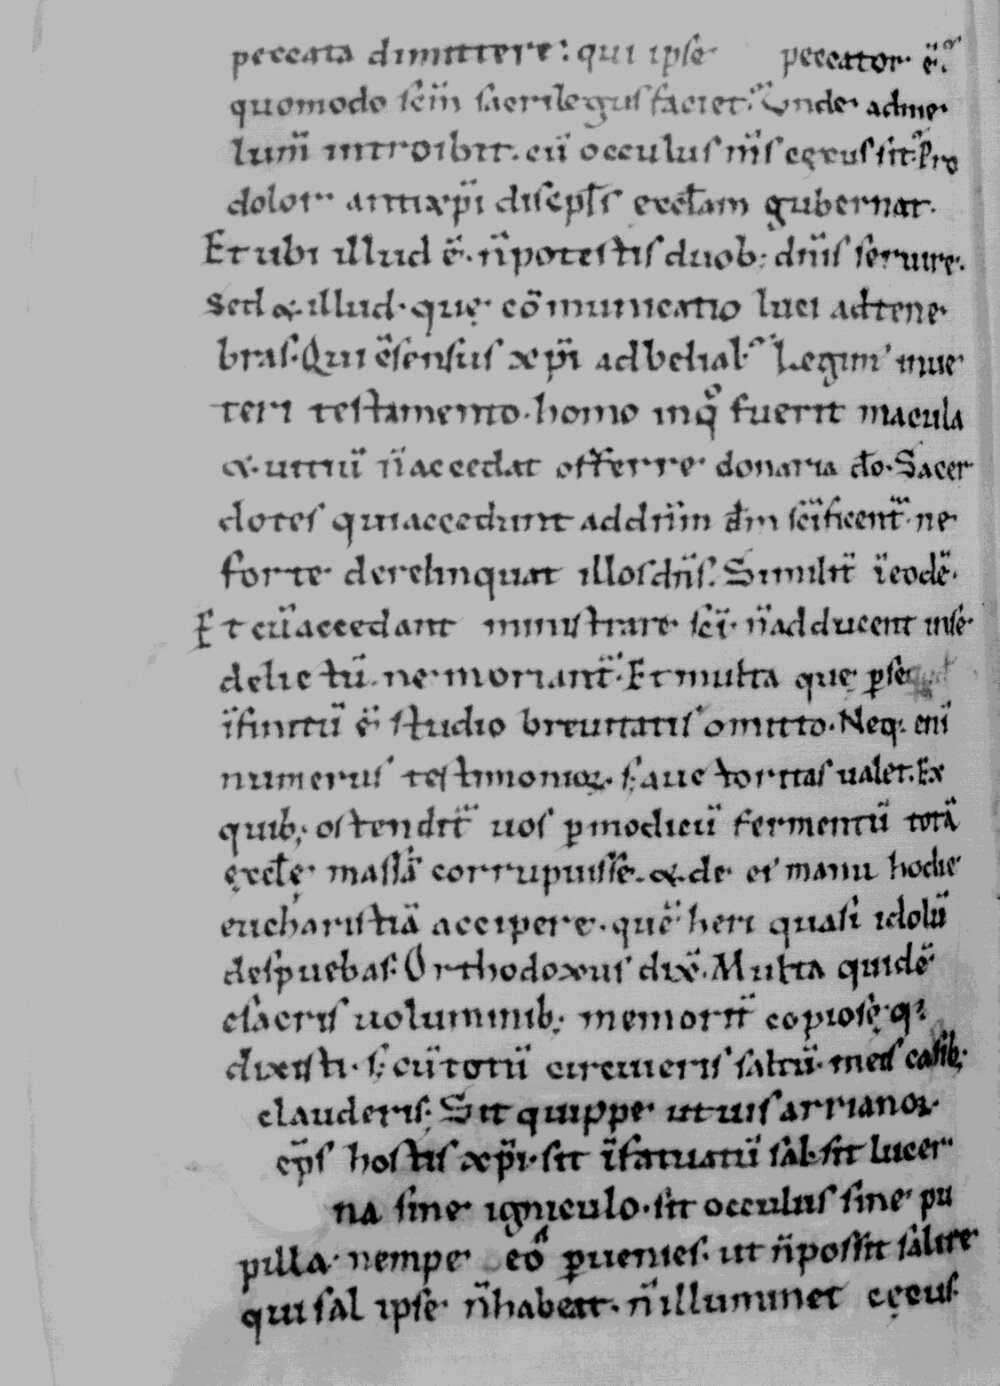 peccata dimittere: qui ipse peccator· ē.
quomodo scm̄ sacrilegus faciet. Unde· ad me·
lum̄ introibit. cū occulus nr̄s cęcus sit. Pro
dolor· antixp̄i discipl̄s eccl̄am gubernat·
Et ubi illud ē· n̄ potestis duob; dn̄is seruire·
Sed & illud· quę com̄municatio luci ad tene
bras· Qui ēsensus xp̄i ad belial· Legim' in ue
teri testamento· homo in q° fuerit macula
&· uitiū n̄ accedat offerre donaria do· Sacer
dotes qui accedunt ad dn̄m dm̄ sc̄ificent̄· ne
forte derelinquat illos dn̄s. Similit̄ ī eodē·
Et cū accedant ministrare sc̄i· n̄ adducent in se·
delictū· ne moriant̄· Et multa quę p̱ se
īfinitū ē studio breuitatis omitto· Neq. eni
numerus testimonioꝝ· s; auctoritas ualet. Ex
quib; ostendit̄ uos p̱ modicū fermentū totā
ęccl̄ę massā corrupuisse·&·de ei manu hodie
eucharistiā accipere· quē heri quasi idolū
despuebas· Orthodoxus dixē· Multa quidē
esacris uoluminib; memorit̄ copiosę· q;
dixisti· s; cū totū circuieris saltū· meis casib;
clauderis; Sit quippe ut uis arrianoꝝ·
ep̄s hostis xp̄i· sit īfatuatū sal· sit lucer
na sine igniculo· sit occulus sine pu
pilla· nempe eo p̱uenies· ut n̄ possit salire
qui sal ipse n̄ habeat· n̄ illuminet cęcus·